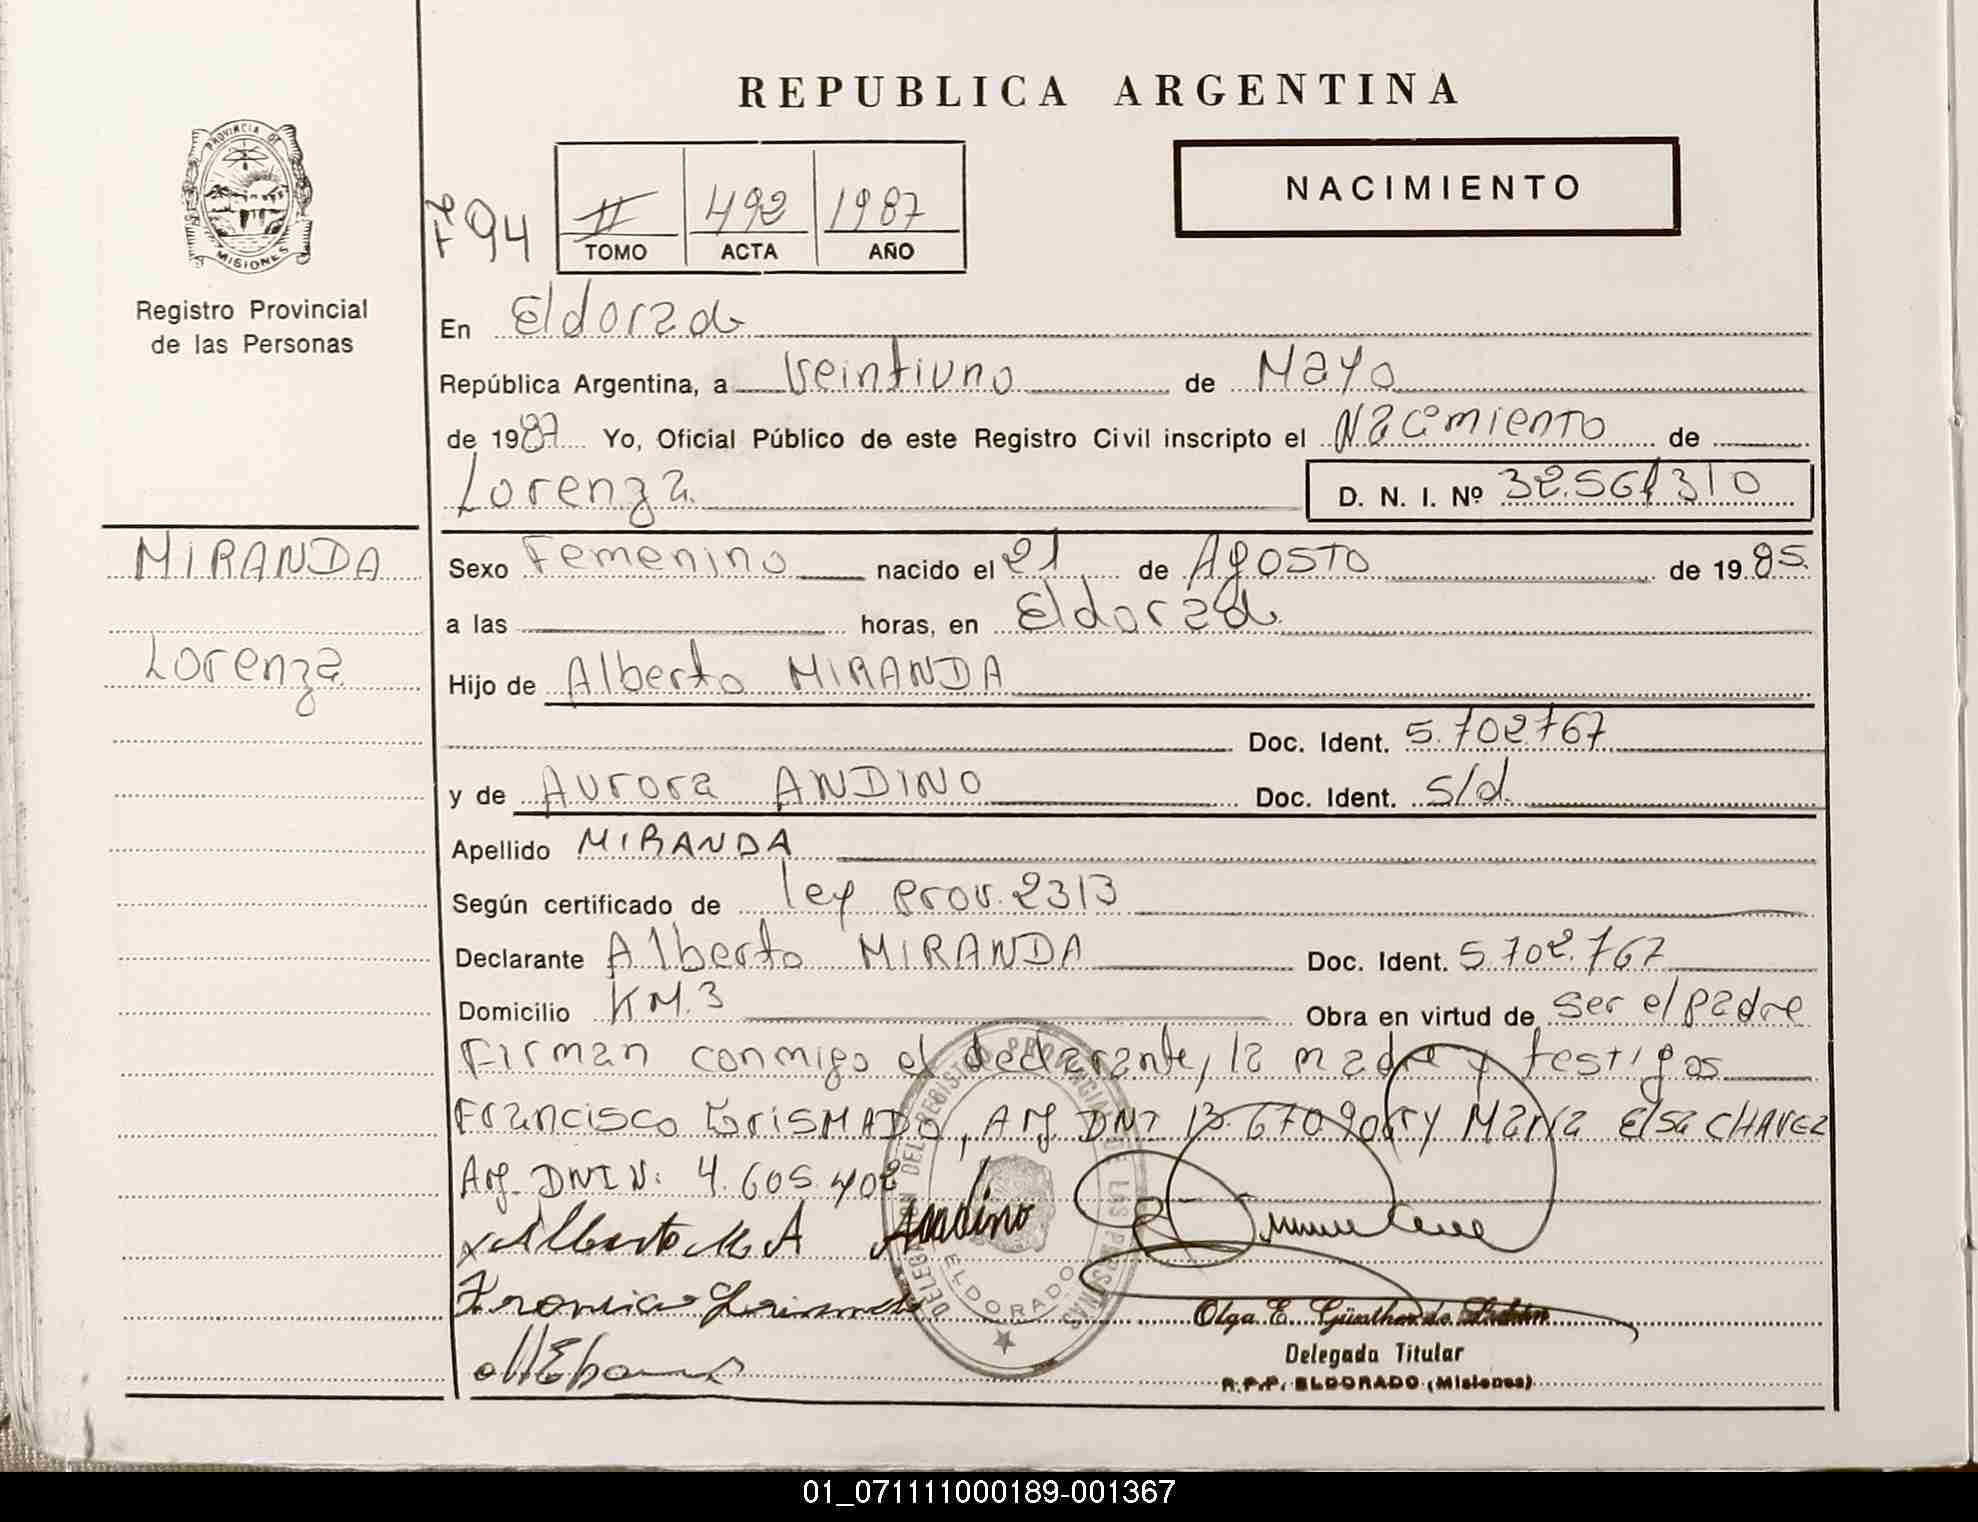 REPUBLICA ARGENTINA
PROVINCIA DE
MISIONES
Registro Provincial
de las Personas
Fº 94
II 492 1987
TOMO ACTA AÑO
NACIMIENTO
En Eldorado
República Argentina, a veintiuno de Mayo
de 1987 Yo, Oficial Público de este Registro Civil inscripto el Nacimiento de
Lorenza
D. N. I. Nº 32.561310
MIRANDA
Lorenza
Sexo Femenino nacido el 21 de Agosto de 1985.
a las horas, en Eldorado
Hijo de Alberto MIRANDA
Doc. Ident. 5.702767
y de Aurora ANDINO Doc. Ident. s/d.
Apellido MIRANDA
Según certificado de ley prov. 2313
Declarante Alberto MIRANDA Doc. Ident. 5.702.767
Domicilio KM.3 Obra en virtud de ser el padre
Firman conmigo el declarante, la madre y testigos
Francisco GrisMADO, Arg DNI y María Elsa CHAVEZ
Arg. DNI N: 4.605.402
x Alberto M A Andino
DELEGACION DEL REGISTRO PROVINCIAL DE LAS PERSONAS
ELDORADO
Olga E.
Delegada Titular
R.P.P. ELDORADO (Misiones)
01_071111000189-001367